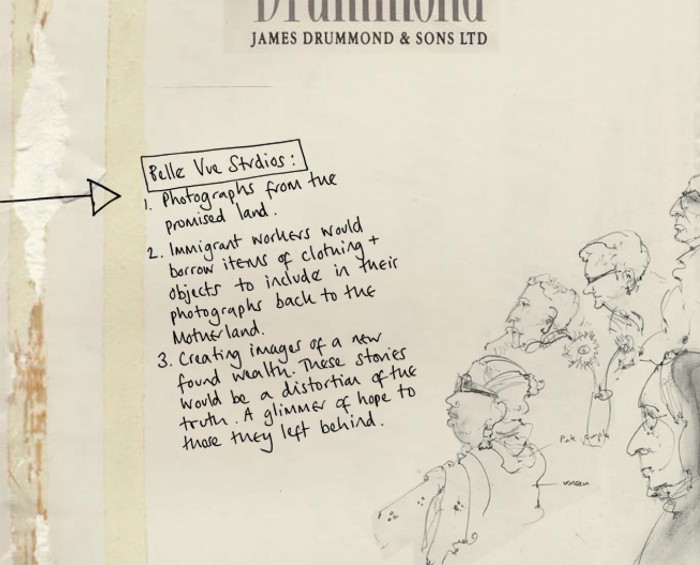 Drummond
JAMES DRUMMOND & SONS LTD
Belle Vue Studios:
1. Photographs from the
promised land.
2. Immigrant workers would
borrow items of clothing +
objects to include in their
photographs back to the
Motherland.
3. Creating images of a new
found wealth. These stories
would be a distortion of the
truth. A glimmer of hope to
those they left behind.